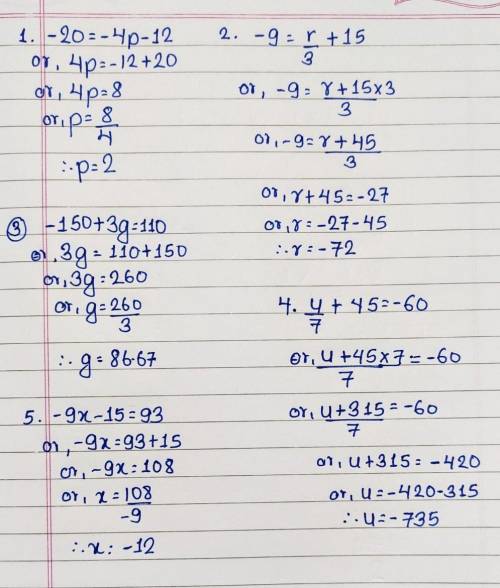 1. -20=-4p-12
or, 4p=-12+20
or, 4p=8
or, p=8/4
∴p=2
2. -9=r/3+15
or, -9=(r+15×3)/3
or, -9=(r+45)/3
or, r+45=-27
or, r=-27-45
∴r=-72
③ -150+3g=110
or, 3g=110+150
or, 3g=260
or, g=260/3
∴g=86.67
4. u/7+45=-60
or, (u+45×7)/7=-60
or, (u+315)/7=-60
or, u+315=-420
or, u=-420-315
∴u=-735
5. -9x-15=93
or, -9x=93+15
or, -9x=108
or, x=108/-9
∴x: -12